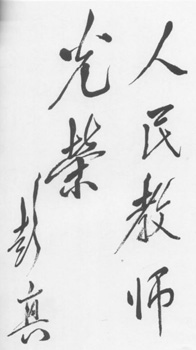 人民教师
光荣
彭真